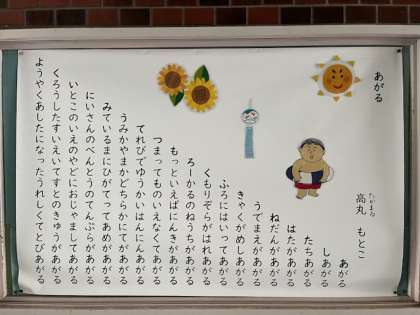 あがる
たかまる
高丸 もとこ
あがる
しあがる
たちあがる
はたがあがる
ねだんがあがる
うでまえがあがる
きゃくがめしあがる
ふろにはいってあがる
くもりぞらがはれあがる
ろーかるのねうちがあがる
もっといえばにんきがあがる
つまってものいえなくてあがる
てれびでゆうかいはんにんあがる
うみかやまかどちらかにてがあがる
みているまにひがてってあめがあがる
にいさんのべんとうのてんぷらがあがる
いとこのいえのやどにおじゃましてあがる
くろうしたすいえいてすとのきゅうがあがる
ようやくあしたになったうれしくてとびあがる